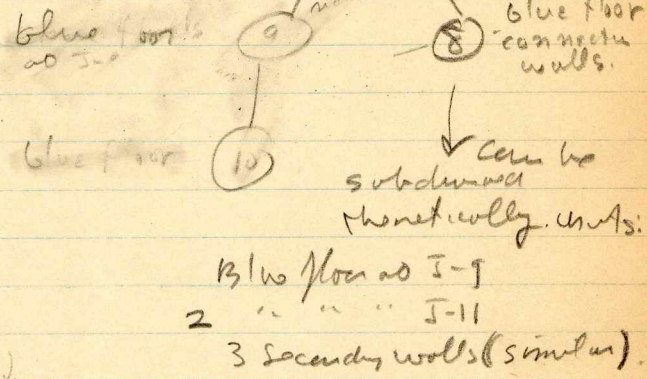 blue floor
9
8
blue floor
connects
walls.
blue floor
10
can be
subdivided
units:
Blue floor J-9
2 " " " J-11
3 Secondary walls (similar).